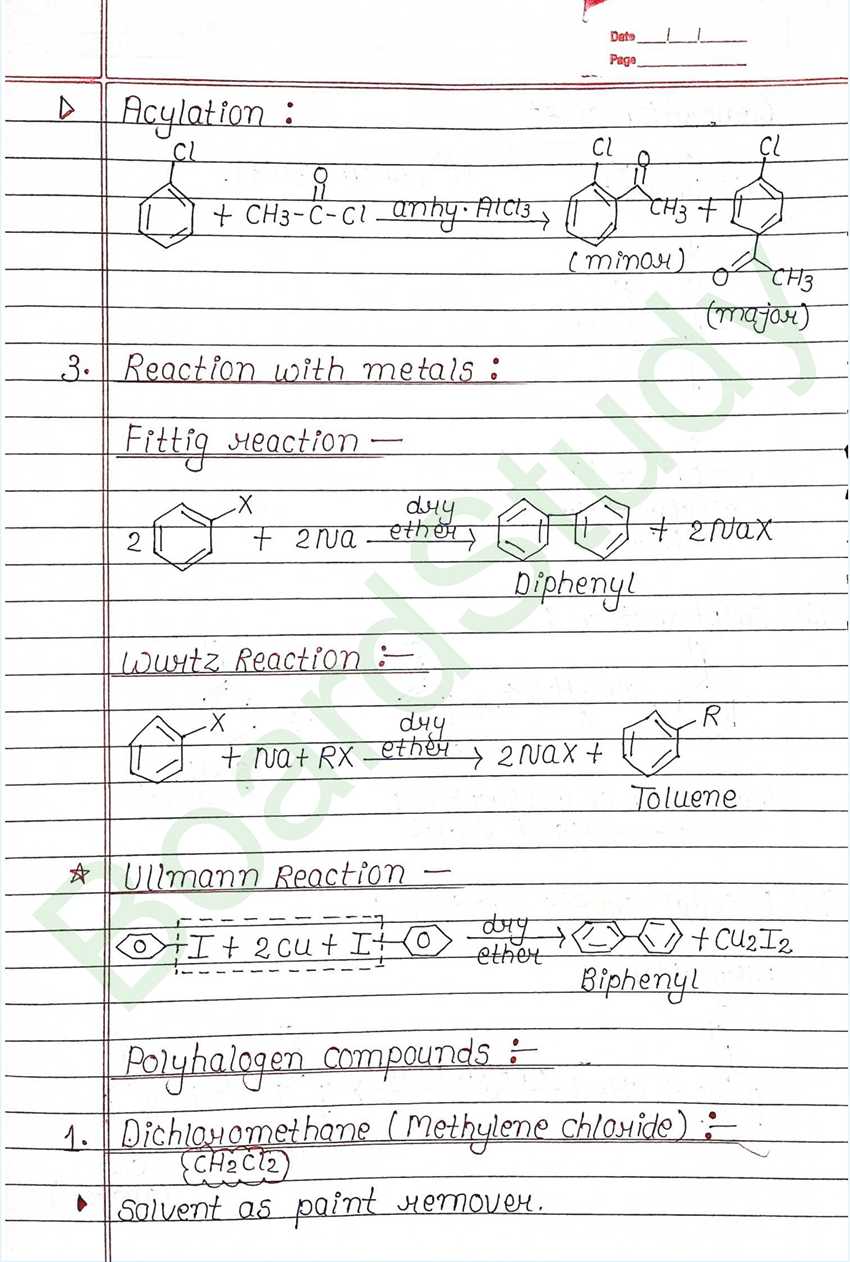 Date / /
Page
Acylation :
Cl
O
Cl
O
Cl
+ CH3-C-Cl anhy. AlCl3
CH3 +
(minor)
O
CH3
(major)
3. Reaction with metals :
Fittig reaction —
X
dry
2
+ 2Na
ether
+ 2NaX
Diphenyl
Wurtz Reaction :-
X
dry
R
+ Na + RX
ether
2NaX +
Toluene
Ullmann Reaction —
I + 2Cu + I
dry
ether
+ Cu2I2
Biphenyl
Polyhalogen compounds :-
1. Dichloromethane (Methylene chloride) :-
CH2Cl2
Solvent as paint remover.
BoardStudy